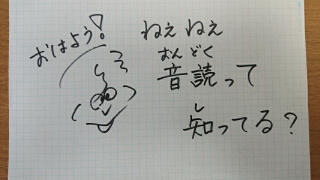 おはよう!
ねぇねぇ
おんどく
音読って
し
知ってる?